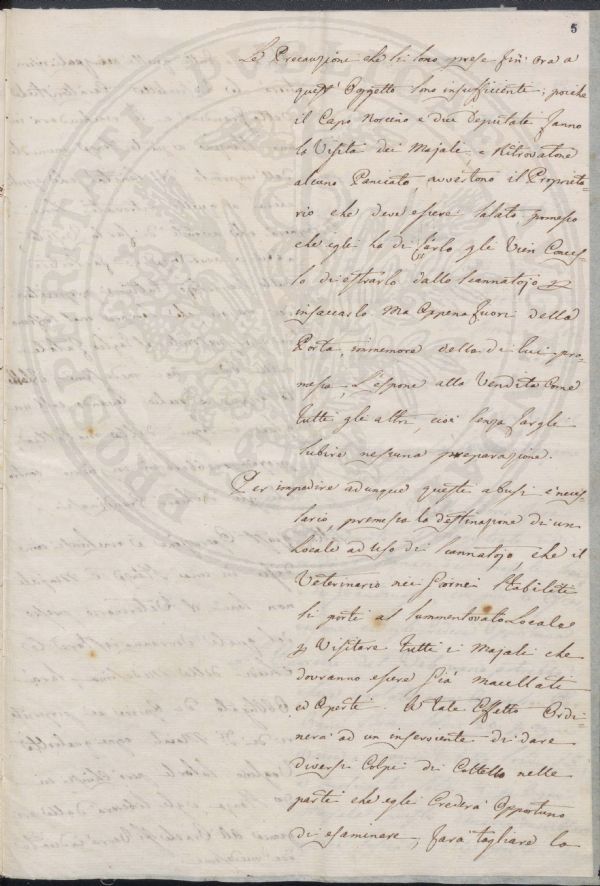 5
Le Precauzioni che si sono prese fin ora a
quest'Oggetto sono insufficiente; poiche
il Capo Norcino e due Deputate fanno
la Visita dei Majali, e Ritrovatone
alcuno Paniato, avvertono il Propriet-
rio che deve essere salato, promesso
che egli ha di farlo gli vien Conces-
so di estrarlo dallo Scannatojo p
insaccarlo Ma Appena fuori della
Porta, immemore della di lui pro-
messa, L'espone alla Vendita Come
tutti gli altri, cioè senza fargli
subire nessuna preparazione.
Per impedire adunque questi abusi è neces-
sario, premessa la destinazione di un
Locale ad uso di Scannatojo, che il
Veterinario nei Giorni Stabiliti
si porti al summentovato Locale
p Visitare tutti i Majali che
dovranno essere già macellati
ed Aperti. A tale Effetto Ordi-
nerà ad un inserviente di dare
diversi Colpi di Coltello nelle
parti che egli Crederà Opportuno
di esaminare, farà tagliare la
PROSPERITATI PUBLICAE